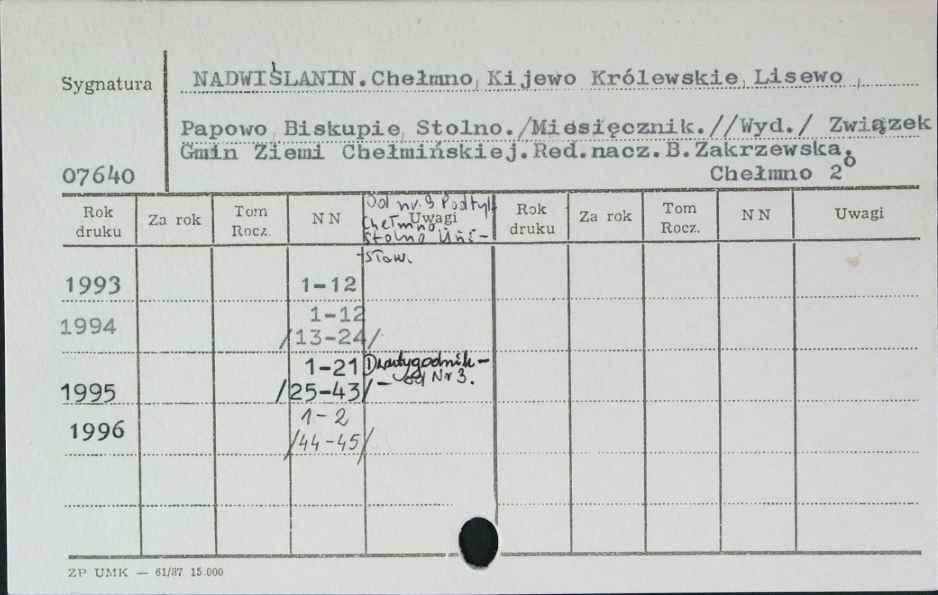 Sygnatura NADWIŚLANIN. Chełmno, Kijewo Królewskie, Lisewo,
Papowo Biskupie, Stolno./Miesięcznik.//Wyd./ Związek
Gmin Ziemi Chełmińskiej.Red.nacz.B.Zakrzewska.
07640 Chełmno 2°
Od nr. 9 Podtyt.
Rok druku Za rok Tom Rocz. NN Uwagi Rok druku Za rok Tom Rocz. NN Uwagi
Chełmno,
Stolno Uni-
sław.
1993 1-12
1994 1-12
/13-24/
1-21 Dwutygodnik-
1995 /25-43/ - od Nr 3.
1996 1-2
/44-45/
ZP UMK — 61/87 15.000